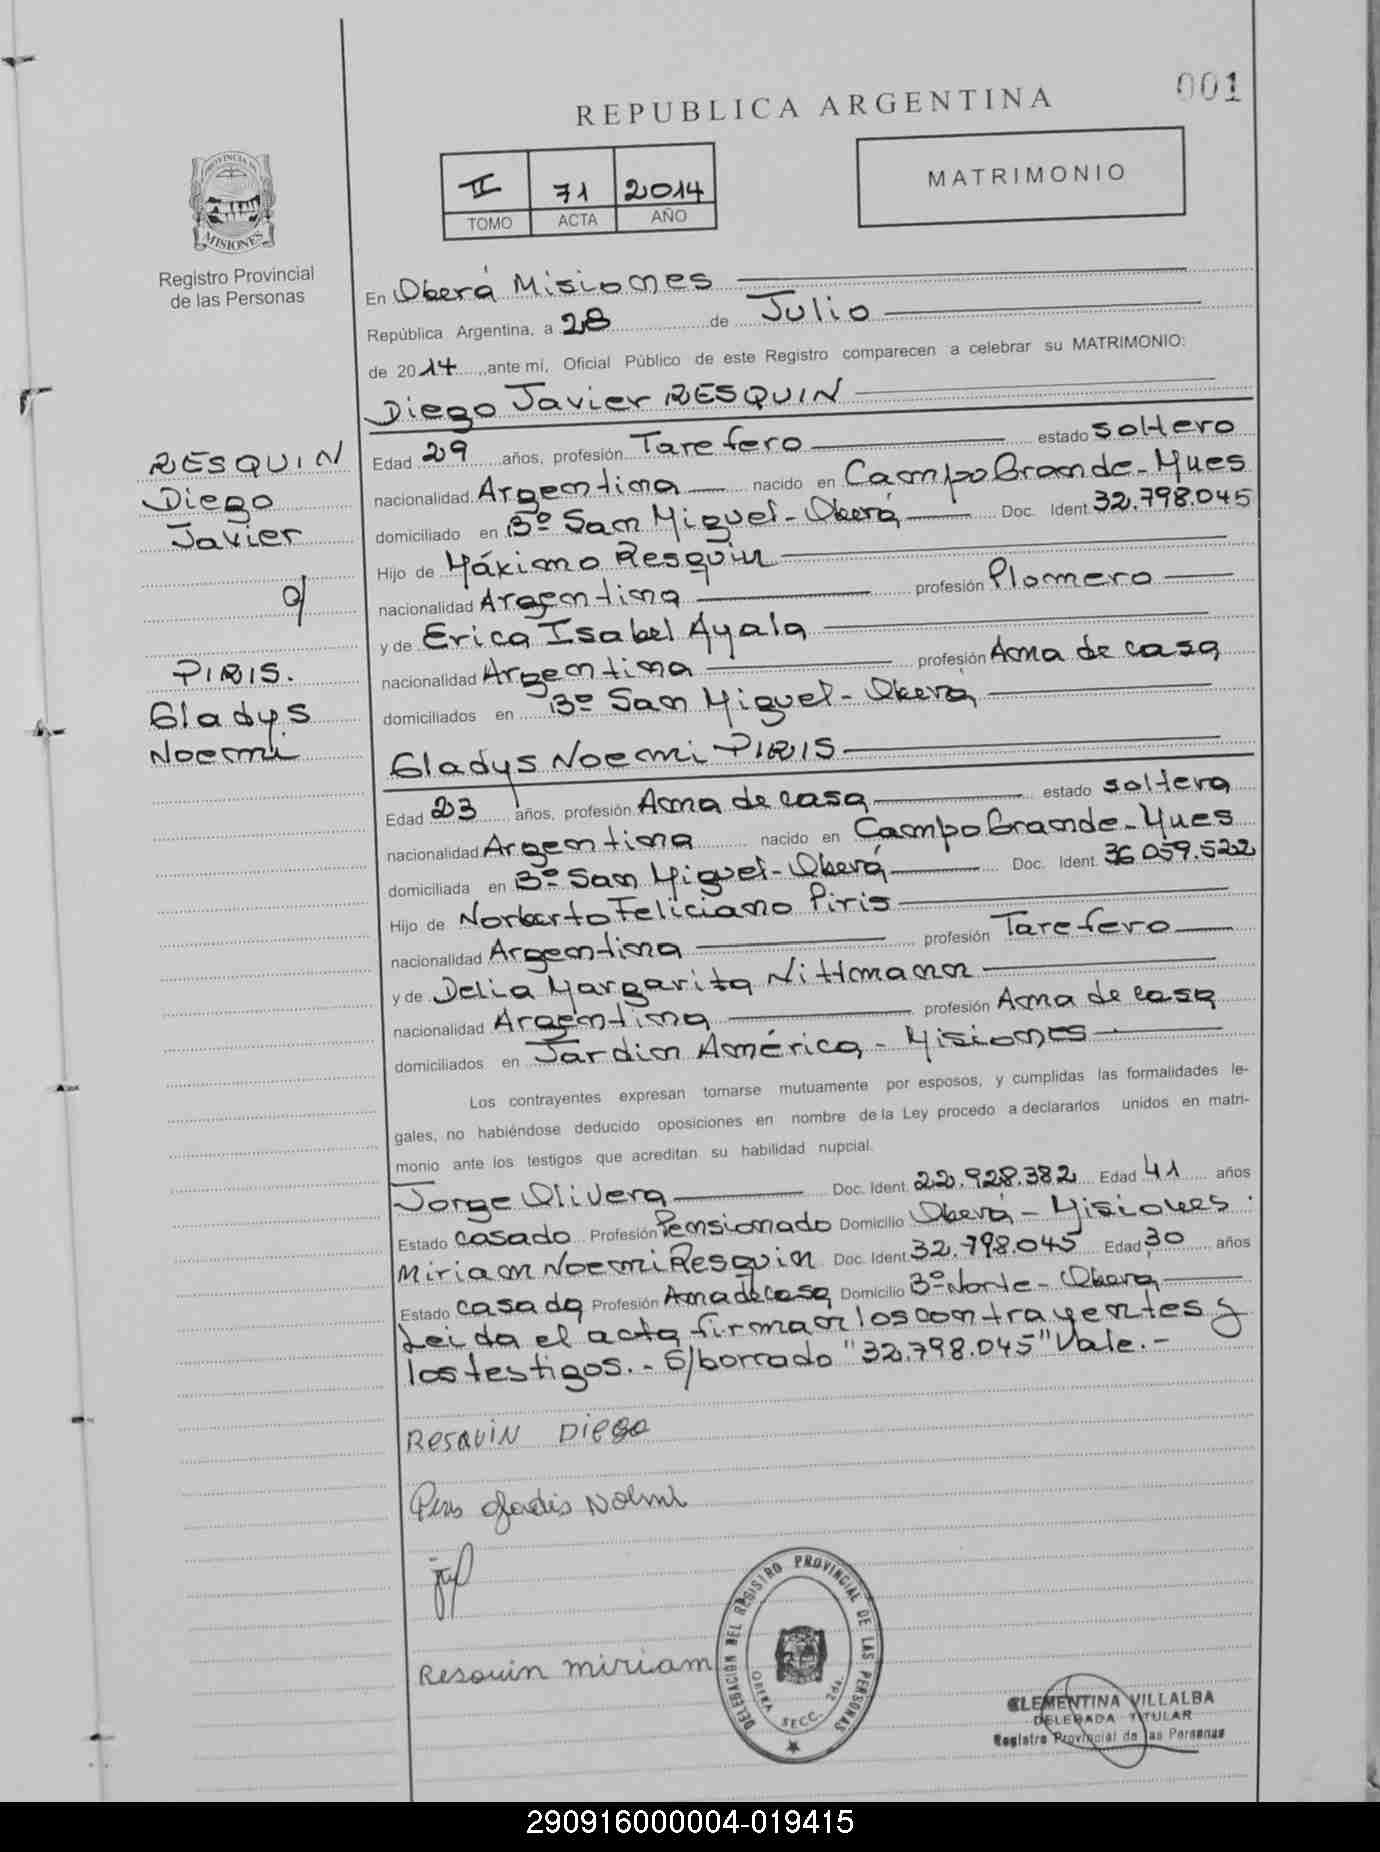 001
REPUBLICA ARGENTINA
PROVINCIA DE
MISIONES
Registro Provincial
de las Personas
II 71 2014
TOMO ACTA AÑO
MATRIMONIO
En Oberá Misiones
República Argentina, a 28 de Julio
de 2014, ante mí, Oficial Público de este Registro comparecen a celebrar su MATRIMONIO:
Diego Javier RESQUIN
RESQUIN
Diego
Javier
c/
PIRIS.
Gladys
Noemi
Edad 29 años, profesión Tarefero estado soltero
nacionalidad Argentina nacido en Campo Grande-Mnes
domiciliado en Bº San Miguel-Oberá Doc. Ident. 32.798.045
Hijo de Máximo Resquin
nacionalidad Argentina profesión Plomero
y de Erica Isabel Ayala
nacionalidad Argentina profesión Ama de casa
domiciliados en Bº San Miguel-Oberá
Gladys Noemi PIRIS
Edad 23 años, profesión Ama de casa estado soltera
nacionalidad Argentina nacido en Campo Grande-Mnes
domiciliada en Bº San Miguel-Oberá Doc. Ident. 36.059.522
Hijo de Norberto Feliciano Piris
nacionalidad Argentina profesión Tarefero
y de Delia Margarita Nittmann
nacionalidad Argentina profesión Ama de casa
domiciliados en Jardin América - Misiones
Los contrayentes expresan tomarse mutuamente por esposos, y cumplidas las formalidades le-
gales, no habiéndose deducido oposiciones en nombre de la Ley procedo a declararlos unidos en matri-
monio ante los testigos que acreditan su habilidad nupcial.
Jorge Olivera Doc. Ident. 22.928.382 Edad 41 años
Estado casado Profesión Pensionado Domicilio Oberá - Misiones
Miriam Noemi Resquin Doc. Ident. 32.798.045 Edad 30 años
Estado casada Profesión Ama de casa Domicilio Bº Norte - Oberá
Leida el acta firman los contrayentes y
los testigos. - S/borrado "32.798.045" Vale.-
RESQUIN DIEGO
Piris Gladis Noemi
Resquin miriam
DELEGACION DEL REGISTRO PROVINCIAL DE LAS PERSONAS
OBERA SECC. 2da.
CLEMENTINA VILLALBA
DELEGADA TITULAR
Registro Provincial de las Personas
290916000004-019415